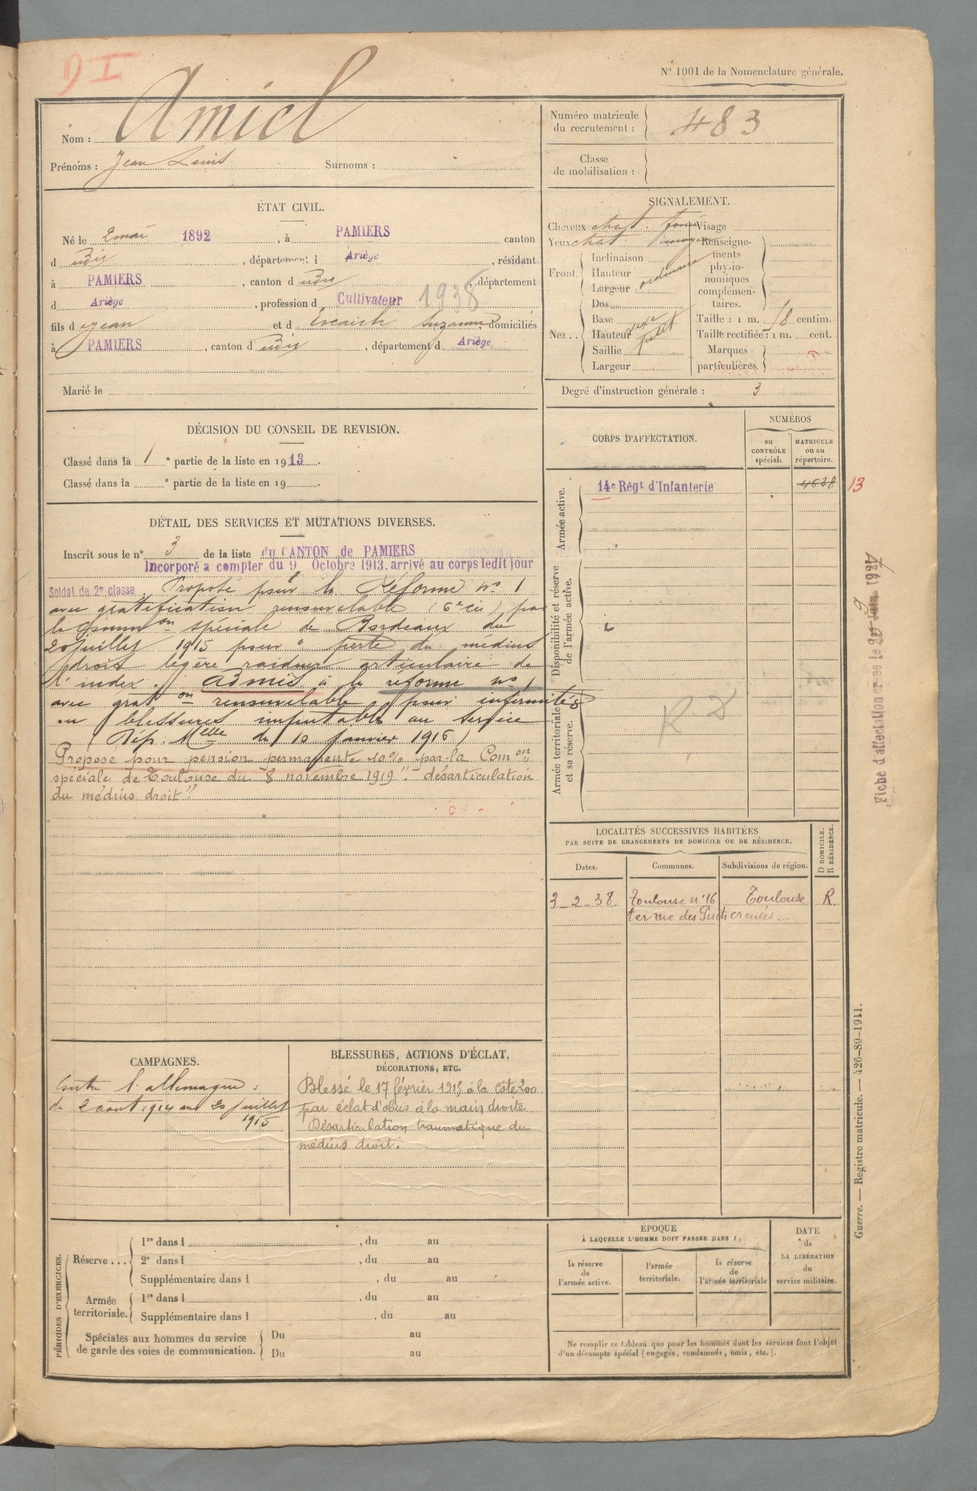 9 I
N° 1001 de la Nomenclature générale.
Nom : Amiel
Prénoms : Jean Louis Surnoms :
Numéro matricule du recrutement : 483
Classe de mobilisation :
ÉTAT CIVIL.
Né le 2 mai 1892, à PAMIERS canton
d udit, département d Ariège, résidant
à PAMIERS, canton d udit, département
d Ariège, profession d Cultivateur 1938
fils d e Jean et d Escaich Suzanne, domiciliés
à PAMIERS, canton d udit, département d Ariège,
Marié le
SIGNALEMENT.
Cheveux chat. foncé Visage
Yeux chat moyen
Renseignements physionomiques complémentaires.
Front. Inclinaison
Hauteur ordinaire
Largeur
Nez. Dos
Base
Hauteur
Saillie
Largeur
Taille : 1 m. 58 centim.
Taille rectifiée : 1 m. cent.
Marques particulières.
Degré d'instruction générale : 3
DÉCISION DU CONSEIL DE REVISION.
Classé dans la 1e partie de la liste en 1913.
Classé dans la e partie de la liste en 19
CORPS D'AFFECTATION.
NUMÉROS
au CONTRÔLE spécial.
MATRICULE ou au répertoire.
Armée active.
14e Régt d'Infanterie 4638
13
Disponibilité et réserve de l'armée active.
Armée territoriale et sa réserve.
DÉTAIL DES SERVICES ET MUTATIONS DIVERSES.
Inscrit sous le n° 3 de la liste du CANTON de PAMIERS
Incorporé à compter du 9 Octobre 1913. arrivé au corps ledit jour
Soldat de 2e classe. Proposé pour la Réforme n° 1
avec gratification renouvelable (6e cie) par
la Common spéciale de Bordeaux du
20 juillet 1915 pour " perte du médius
droit légère raideur articulaire de
l'index. " Admis à la réforme n° 1
avec graton renouvelable pour infirmités
ou blessures imputables au service
(Dép. Melle du 10 janvier 1916)
Proposé pour pension permanente 10% par la Comon
spéciale de Toulouse du 8 novembre 1919 " désarticulation
du médius droit "
Fiche d'affectation créée le
LOCALITÉS SUCCESSIVES HABITÉES
PAR SUITE DE CHANGEMENTS DE DOMICILE OU DE RÉSIDENCE.
Dates. Communes. Subdivisions de région. D DOMICILE. R RÉSIDENCE.
3_2_38. Toulouse n° 16 Toulouse R
ter rue des Puits creusés.
CAMPAGNES.
Contre l'allemagne :
du 2 août 1914 au 20 juillet
1915
BLESSURES, ACTIONS D'ÉCLAT,
DÉCORATIONS, ETC.
Blessé le 17 février 1915 à la côte 200
par éclat d'obus à la main droite
Désarticulation traumatique du
médius droit.
PÉRIODES D'EXERCICES.
Réserve ... 1re dans l , du au
2e dans l , du au
Supplémentaire dans l , du au
Armée territoriale. 1re dans l , du au
Supplémentaire dans l , du au
Spéciales aux hommes du service de garde des voies de communication. Du au
Du au
ÉPOQUE
À LAQUELLE L'HOMME DOIT PASSER DANS :
la réserve de l'armée active.
l'armée territoriale.
la réserve de l'armée territoriale
DATE de LA LIBÉRATION du service militaire.
Ne remplir ce tableau que pour les hommes dont les services font l'objet
d'un décompte spécial (engagés, condamnés, omis, etc.).
Guerre. — Registre matricule. — 426-89-1911.